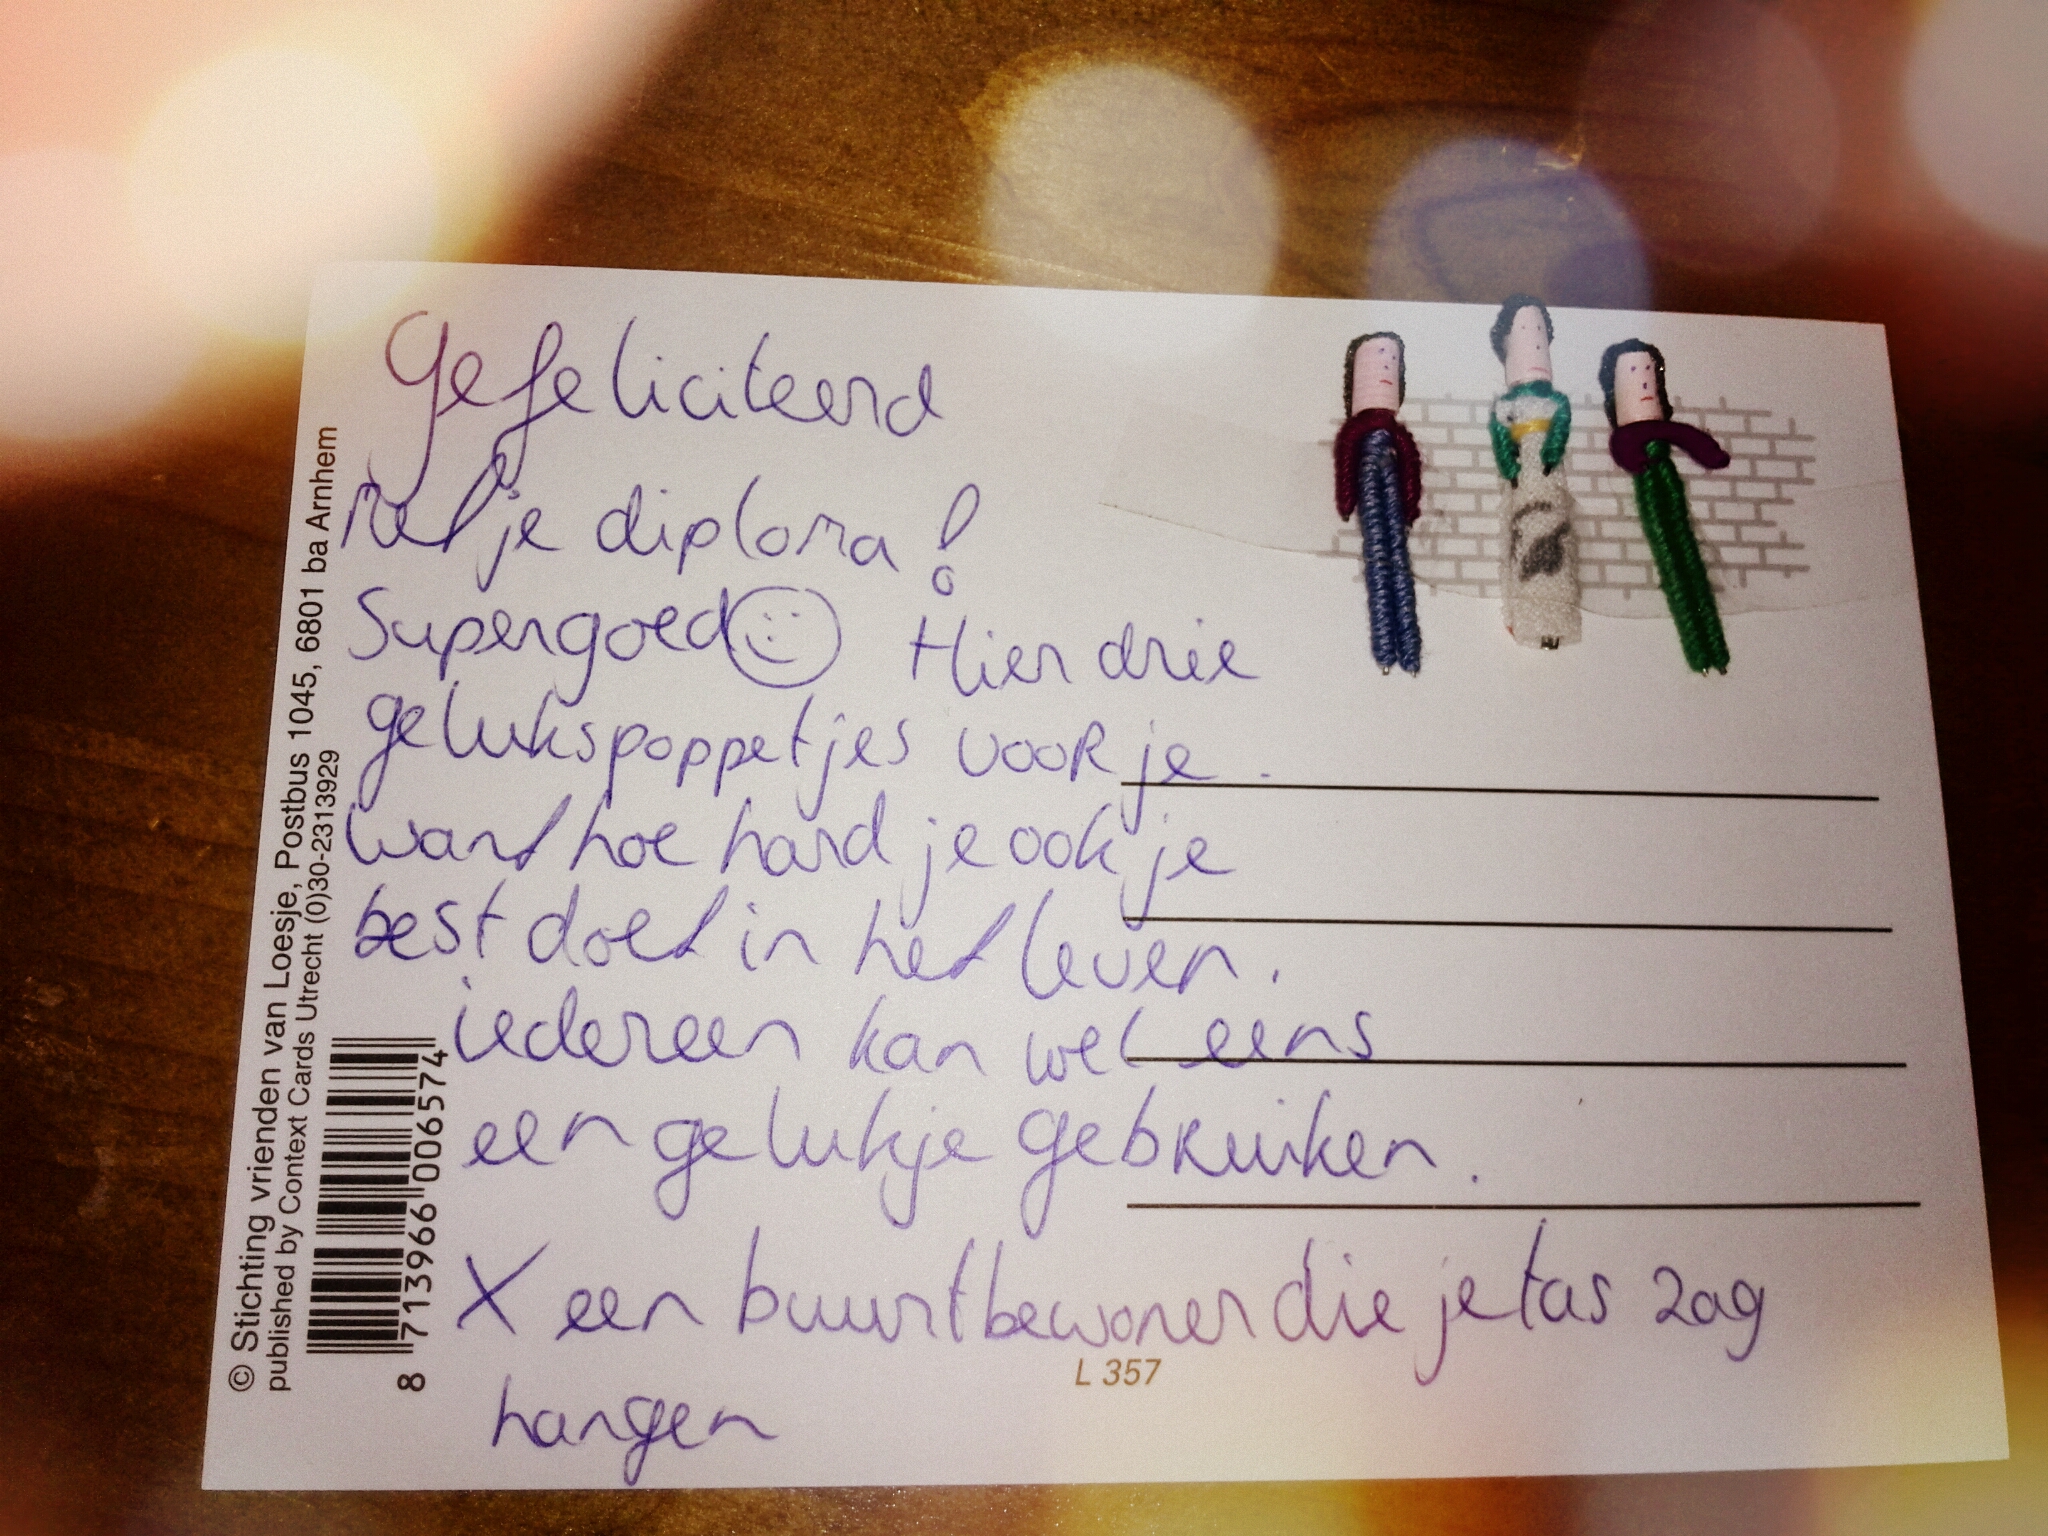 Gefeliciteerd
met je diploma!
Supergoed Hier drie
gelukspoppetjes voor je.
want hoe hard je ook je
best doet in het leven.
iedereen kan wel eens
een gelukje gebruiken.
X een buurtbewoner die je tas zag
hangen
© Stichting vrienden van Loesje, Postbus 1045, 6801 ba Arnhem
published by Context Cards Utrecht (0)30-2313929
8 713966 006574
L 357